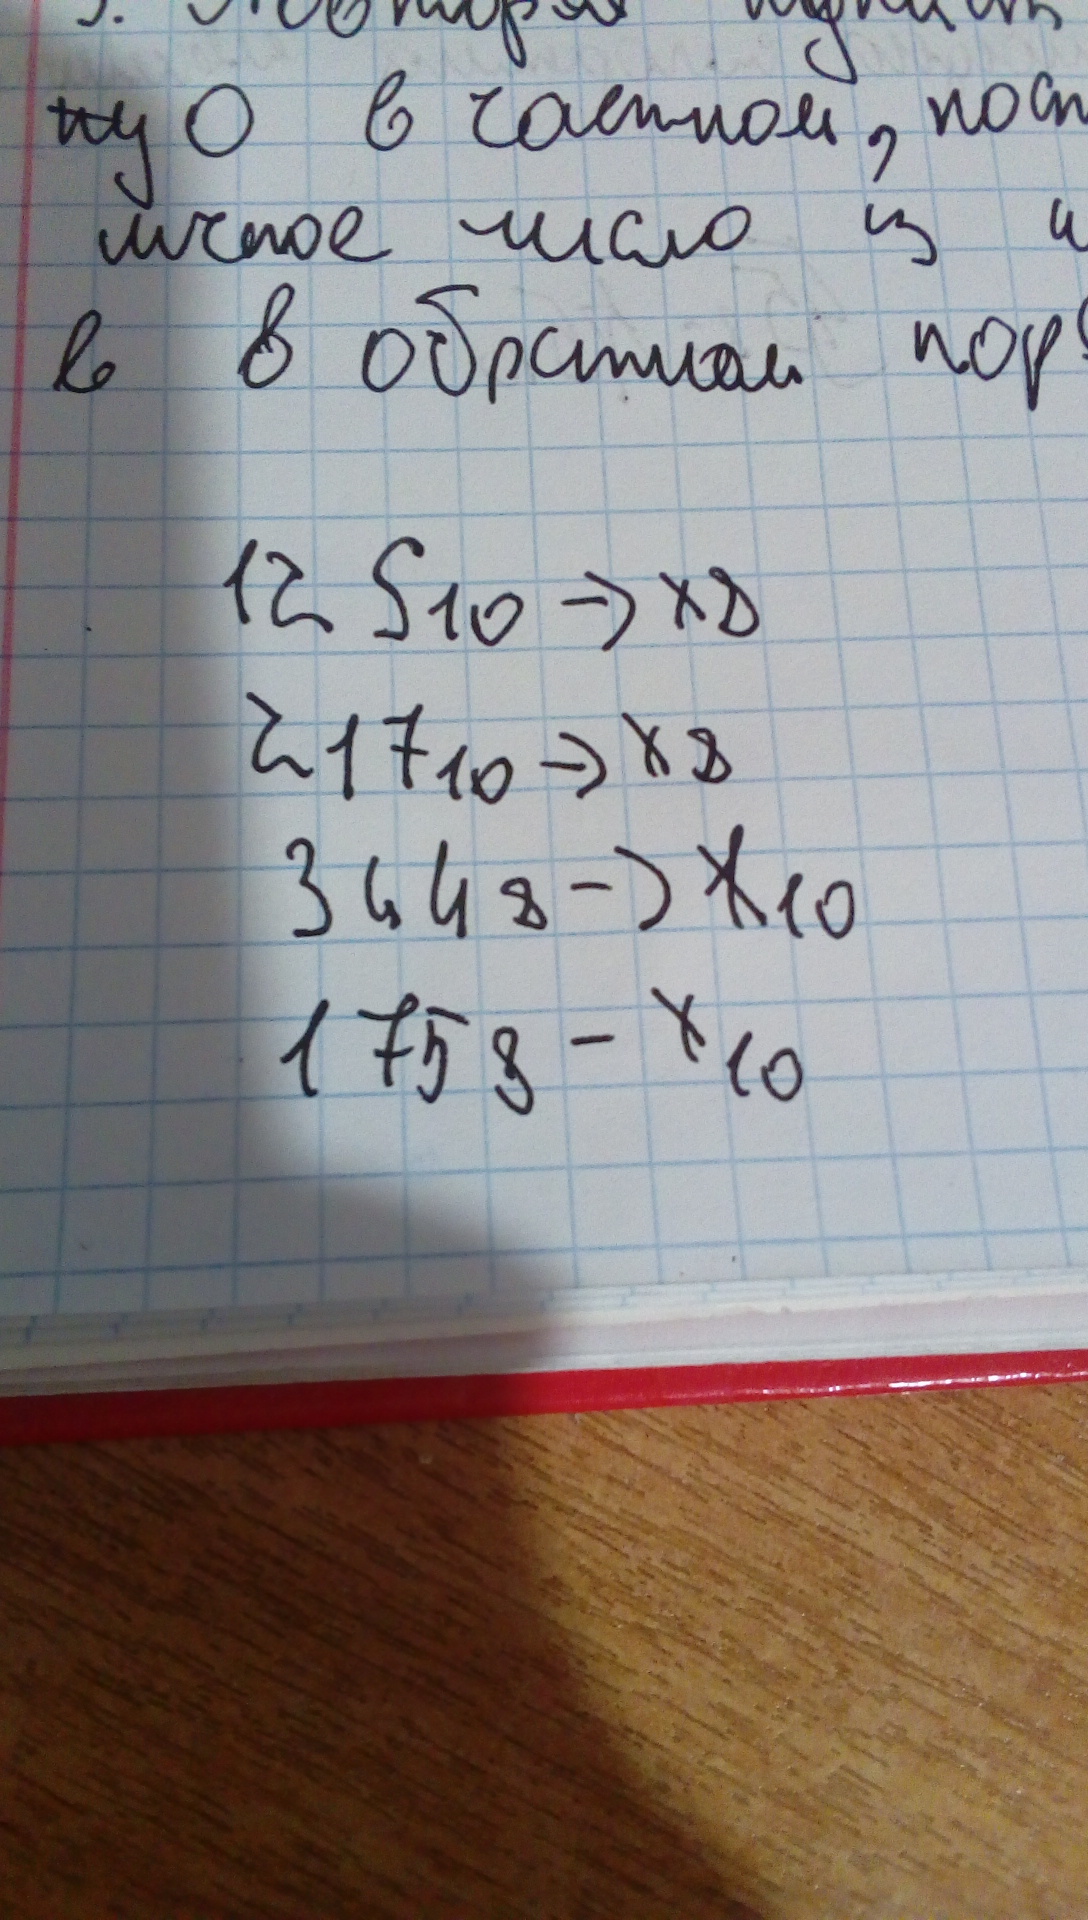 3. Повторяя
ну 0 в частном, пост
ичное число из
в в обратном пор
125₁₀ → x₈
217₁₀ → x₈
344₈ → x₁₀
175₈ – x₁₀